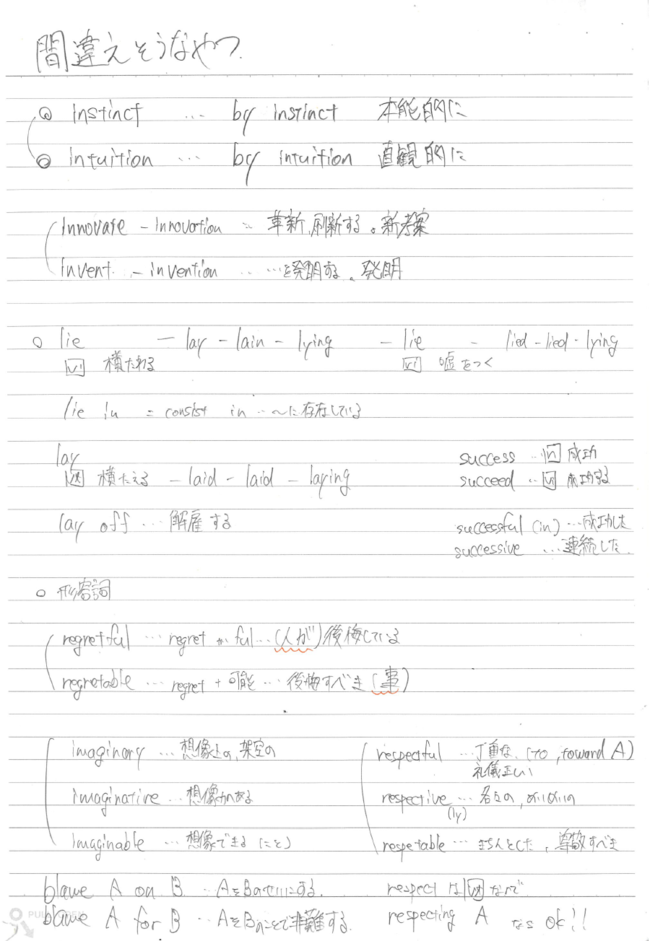 間違えそうなやつ
instinct … by instinct 本能的に
intuition … by intuition 直観的に
innovate - innovation … 革新、刷新する。新考案
invent - invention … …を発明する、発明
lie - lay - lain - lying - lie - lied - lied - lying
vi 横たわる vi 嘘をつく
lie in = consist in … 〜に存在している
lay success … n 成功
vt 横たえる - laid - laid - laying succeed … vi 成功する
lay off … 解雇する successful (in) … 成功した
successive … 連続した
形容詞
regretful … regretがful … (人が)後悔している
regretable … regret + 可能 … 後悔すべき(事)
imaginary … 想像上の、架空の respectful … 丁重な、(to, toward A)
礼儀正しい
imaginative … 想像力がある respective … 各々の、
(ly)
imaginable … 想像できる(こと) respetable … きちんとした、尊敬すべき
blame A on B … AをBのせいにする respect は vt なので
blame A for B … AをBのことで非難する respecting A なら OK!!